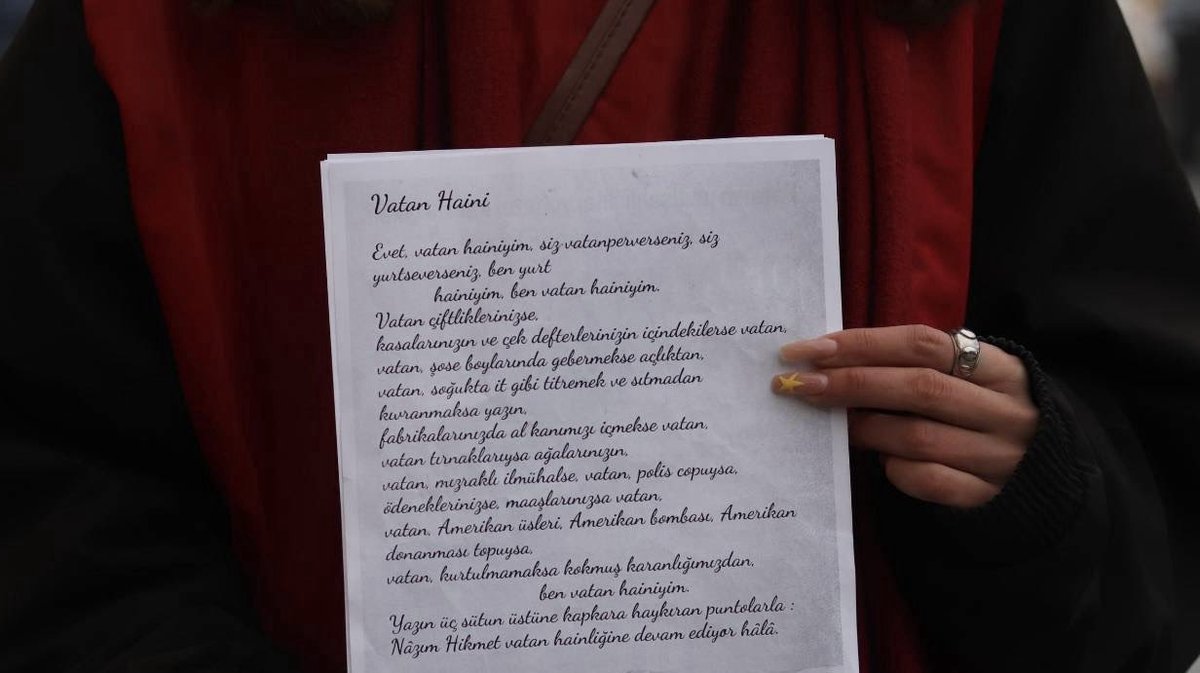 Vatan Haini
Evet, vatan hainiyim, siz vatanperverseniz, siz
yurtseverseniz, ben yurt
hainiyim, ben vatan hainiyim.
Vatan çiftliklerinizse,
kasalarınızın ve çek defterlerinizin içindekilerse vatan,
vatan, şose boylarında gebermekse açlıktan,
vatan, soğukta it gibi titremek ve sıtmadan
kıvranmaksa yazın,
fabrikalarınızda al kanımızı içmekse vatan,
vatan tırnaklarıysa ağalarınızın,
vatan, mızraklı ilmühalse, vatan, polis copuysa,
ödeneklerinizse, maaşlarınızsa vatan,
vatan, Amerikan üsleri, Amerikan bombası, Amerikan
donanması topuysa,
vatan, kurtulmamaksa kokmuş karanlığımızdan,
ben vatan hainiyim.
Yazın üç sütun üstüne kapkara haykıran puntolarla :
Nâzım Hikmet vatan hainliğine devam ediyor hâlâ.